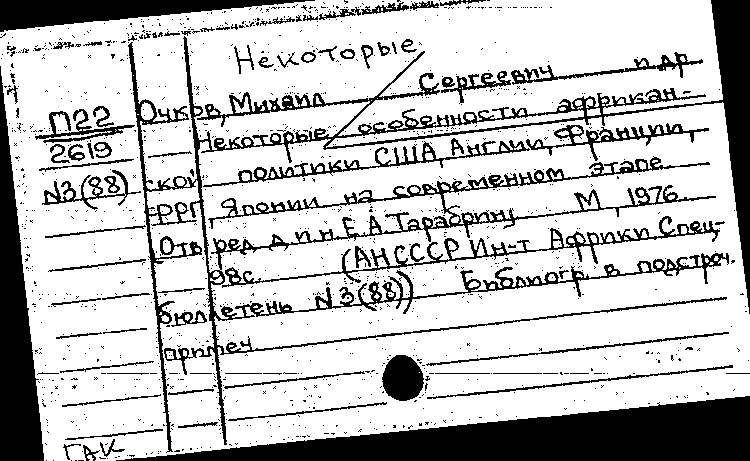 Некоторые
П22
2619
N3(88)
Очков, Михаил Сергеевич и др
Некоторые особенности африкан-
ской политики США, Англии, Франции,
ФРГ, Японии на современном этапе
Отв ред д и.н. Е.А. Тарабрину М, 1976
98с. (АН СССР Ин-т Африки. Спец-
бюллетень N3(88)) Библиогр в подстроч.
примеч
ГАК